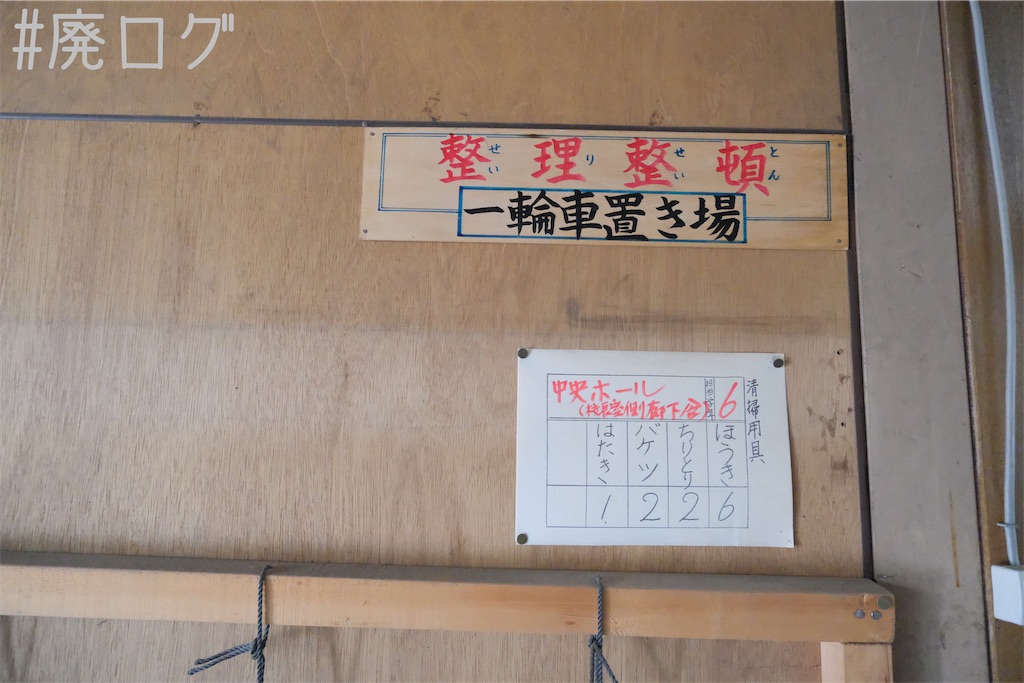 #廃ログ
整理整頓
せいりせいとん
一輪車置き場
清掃用具
中央ホール
6
ほうき 6
ちりとり 2
バケツ 2
はたき 1